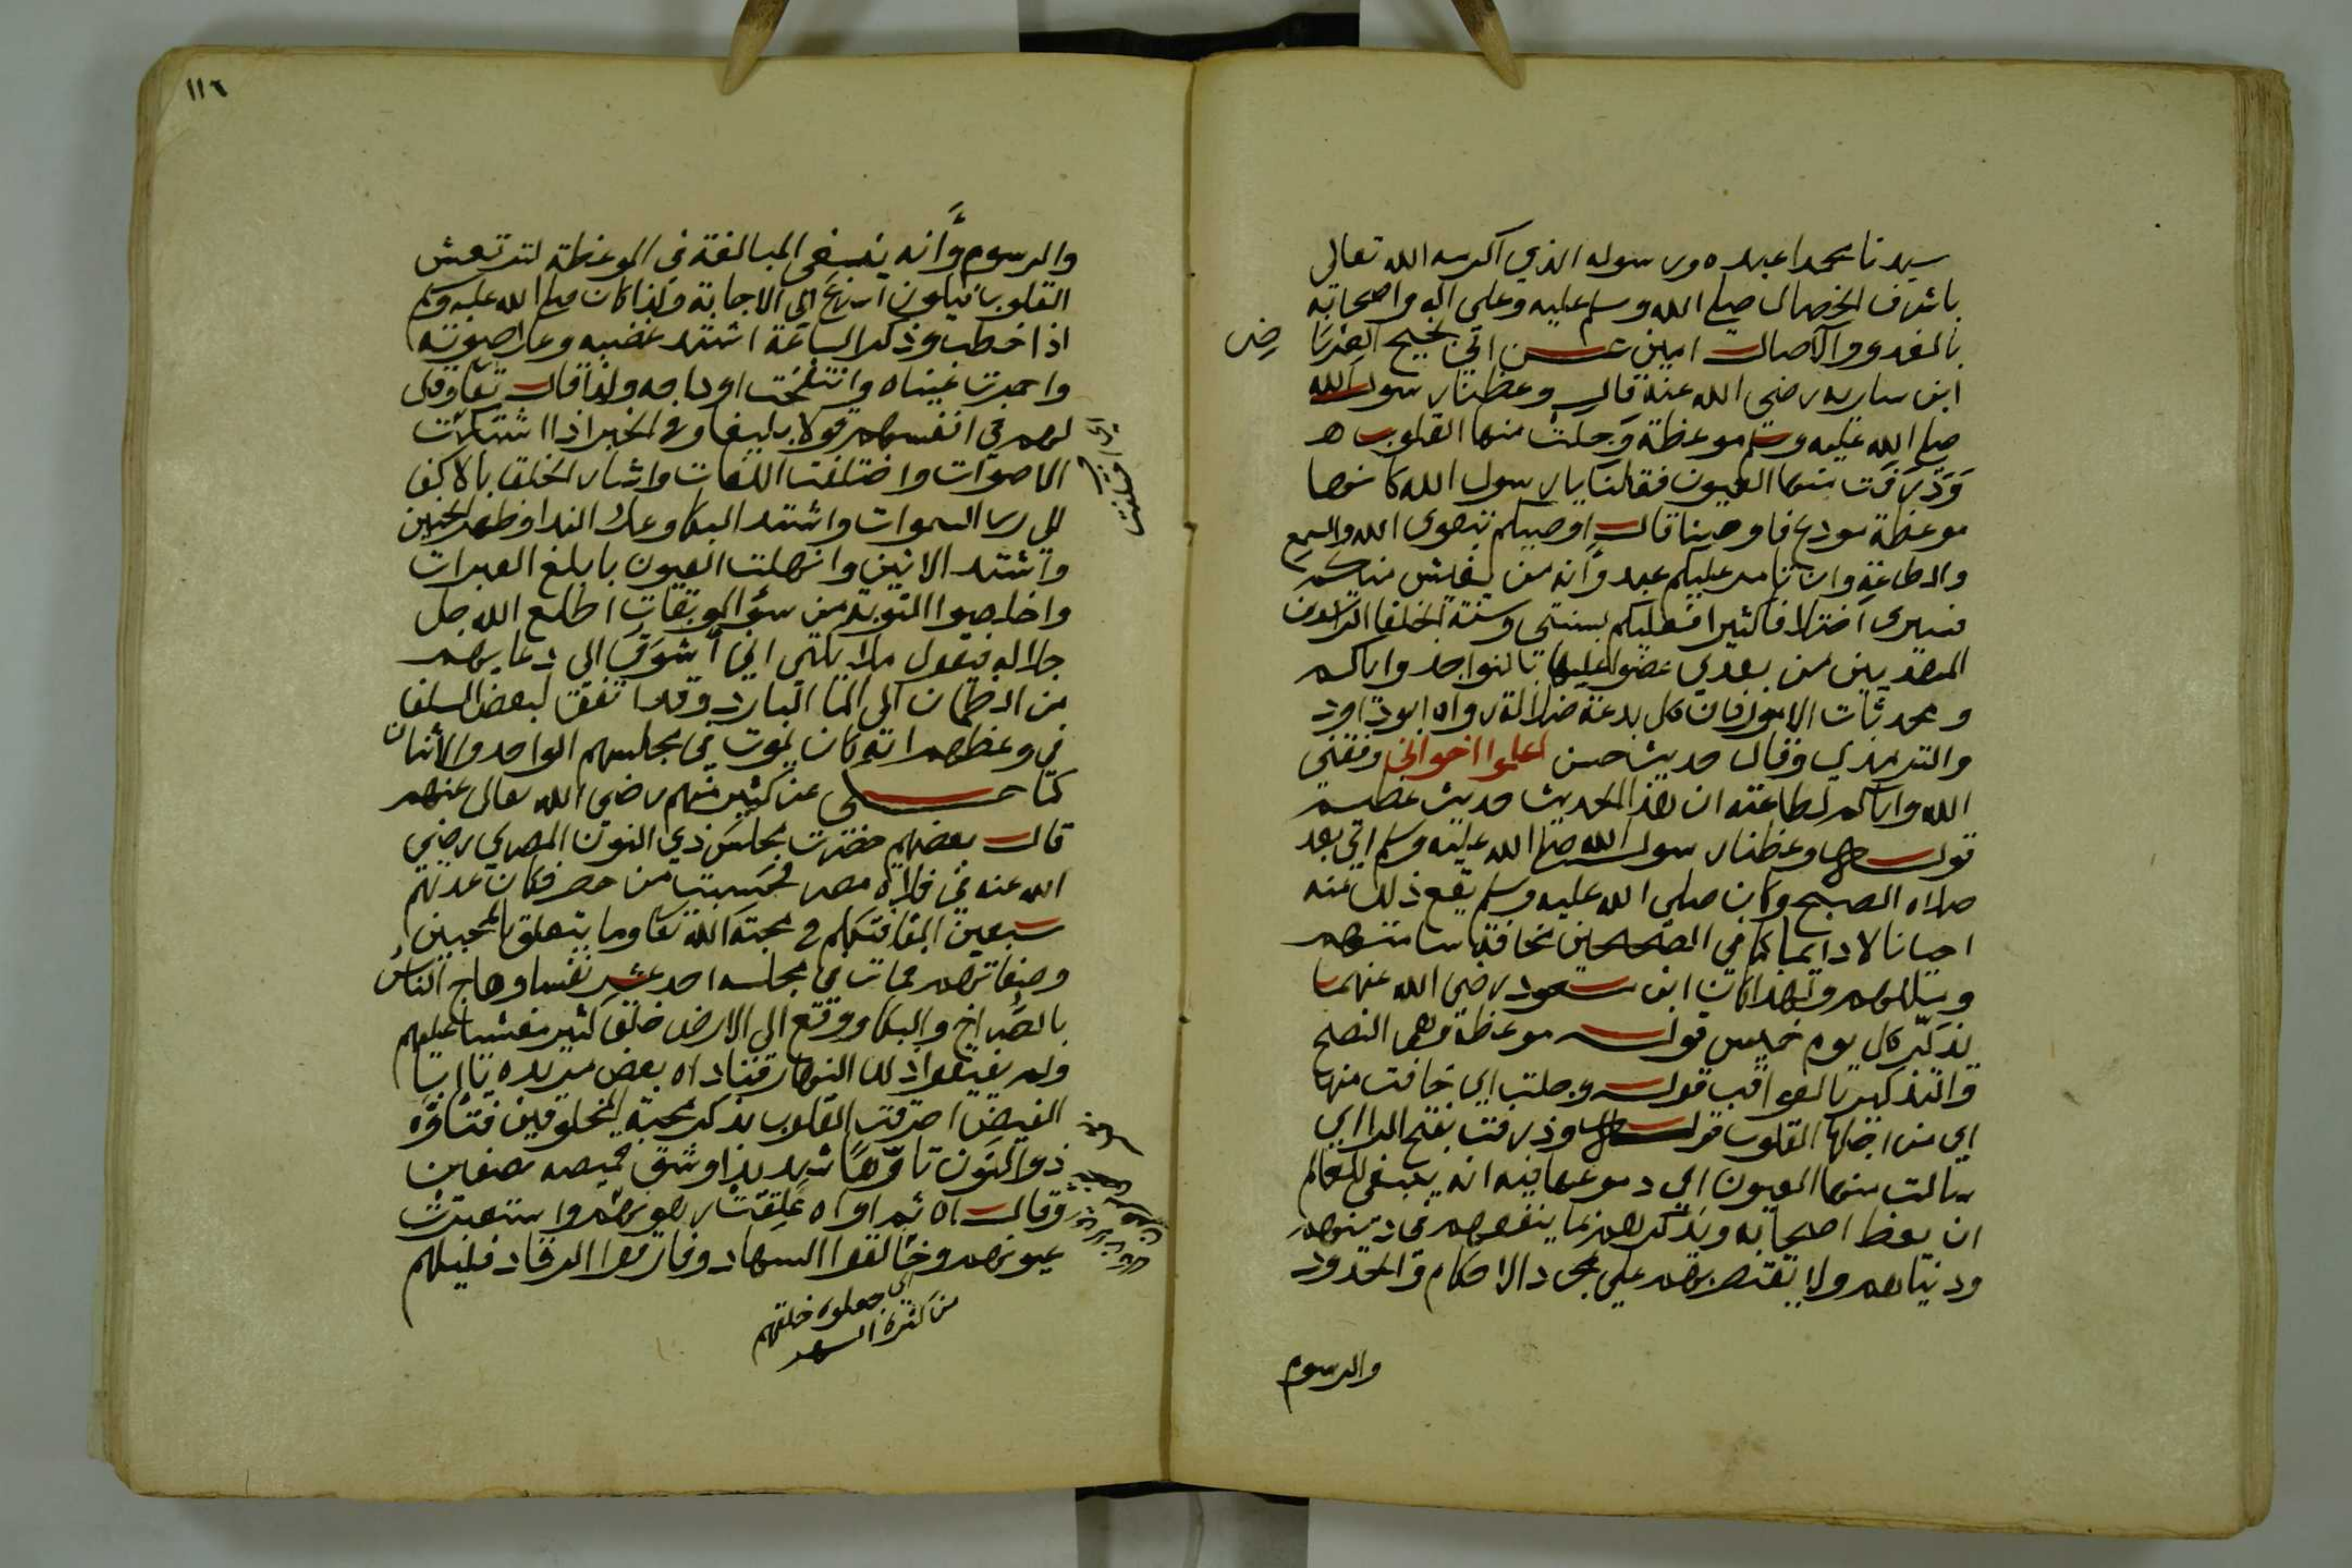 سيدنا محمدا عبده ورسوله الذي اكرمه الله تعالى
باشرف الخصال صلى الله وسلم عليه وعلى اله واصحابه
بالغدو والآصال امين عن ابي نجيح العرباض
ابن ساريه رضي الله عنه قال وعظنا رسول الله
صلى الله عليه وسلم موعظة وجلت منها القلوب
وذرفت منها العيون فقلنا يا رسول الله كانها
موعظة مودع فاوصينا قال اوصيكم بتقوى الله والسمع
والطاعة وان تامر عليكم عبد وأنه من يعيش منكم
فسيرى اختلافا كثيرا فعليكم بسنتي وسنة الخلفا الراشدين
المهديين من بعدي عضوا عليها بالنواجد واياكم
ومحدثات الامور فان كل بدعة ضلالة رواه ابو داود
والترمذي وقال حديث حسن اعلموا اخواني وفقني
الله واياكم لطاعته ان هذا الحديث حديث عظيم
قوله وعظنا رسول الله صلى الله عليه وسلم اي بعد
صلاه الصبح وكان صلى الله عليه وسلم يقع ذلك منه
احيانا لا دايما كما في الصحيحين مخافة سامتهم
ومللهم ولهذا كان ابن مسعود رضي الله عنهما
يذكّر كل يوم خميس قوله موعظة وهي النصح
والتذكير بالعواقب قوله وجلت اي خافت منها
اي من اجلها القلوب قوله وذرفت بفتح الرا اي
سالت منها العيون اي دموعها فيه انه ينبغي للعالم
ان يعظ اصحابه ويذكرهم بما ينفعهم في دينهم
ودنياهم ولا يقتصر بهم على مجرد الاحكام والحدود
والرسوم
١١٦
والرسوم وأنه ينبغي المبالغة في الموعظة لترتعش
القلوب فيكون اسرع الى الاجابة ولذا كان صلى الله عليه وسلم
اذا خطب وذكر الساعة اشتد غضبه وعلا صوته
واحمرت عيناه وانتفخت اوداجه ولذا قال تعا وقل
لهم في انفسهم قولا بليغا وفي الخبر اذا اشتكت
الاصوات واختلفت اللغات واشار الخلق بالاكف
لرب السموات واشتد البكا وعلا الندا وظهر الحنين
واشتد الانين وانهلت العيون بابلغ العبرات
واخلصوا التوبة من سؤ الموبقات اطلع الله جل
جلاله فيقول ملايكتي اني أشوق الى دعايهم
من الظمان الى الما البارد وقد اتفق لبعض السلف
في وعظهم انه كان يموت في مجلسهم الواحد والاثنان
كما حكى عن كثير منهم رضي الله تعالى عنهم
قال بعضهم حضرت مجلس ذي النون المصري رضي
الله عنه في فلاة مصر فحسبت من حضر فكان عدتهم
سبعين الفا فتكلم في محبة الله تعا وما يتعلق بالمحبين
وصفاتهم فمات في مجلسه احد عشر نفسا وهاج الناس
بالصراخ والبكا ووقع الى الارض خلق كثير مغشيا عليهم
ولم يفيقوا ذلك النهار فناداه بعض مريديه يا ابا
الفيض احرقت القلوب بذكر محبة المخلوقين فتأوّه
ذو النون تاوّها شديدا وشق قميصه نصفين
وقال اه ثم اواه غلقت رهونهم واستعبرت
عيونهم وخالفوا السهاد وفارقوا الرقاد فليلهم
اي جعلوه خلقهم
من كثرة السهر